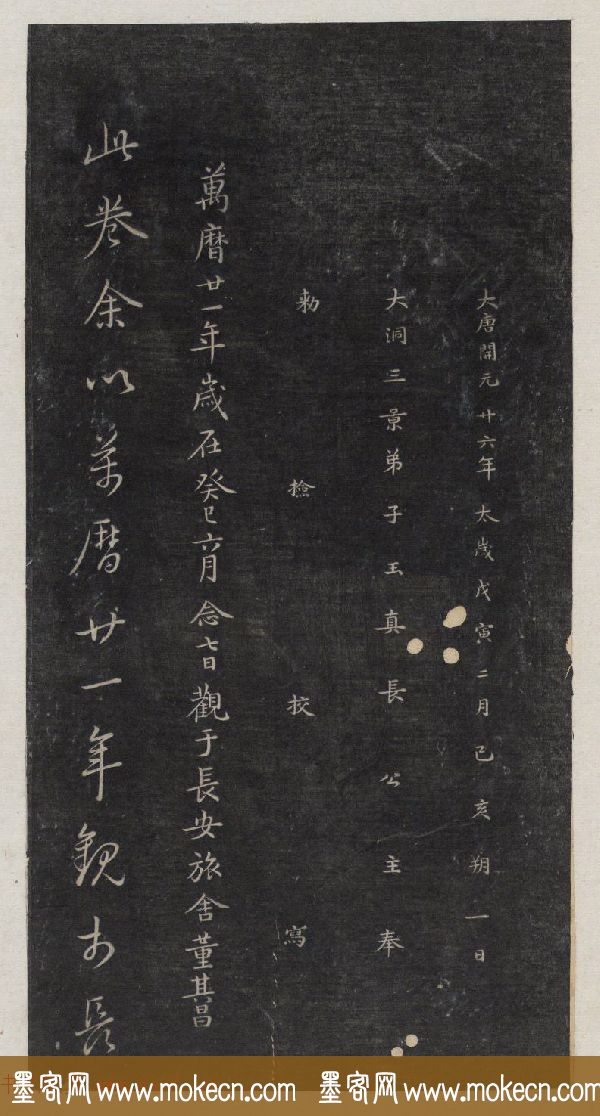 大唐開元廿六年太歲戊寅二月己亥朔一日
大洞三景弟子玉真長公主奉
勑檢校寫
萬曆廿一年歲在癸巳六月念七日觀于長安旅舍董其昌
此卷余以萬曆廿一年觀於長
墨客网 www.mokecn.com 墨客网 www.mokecn.com